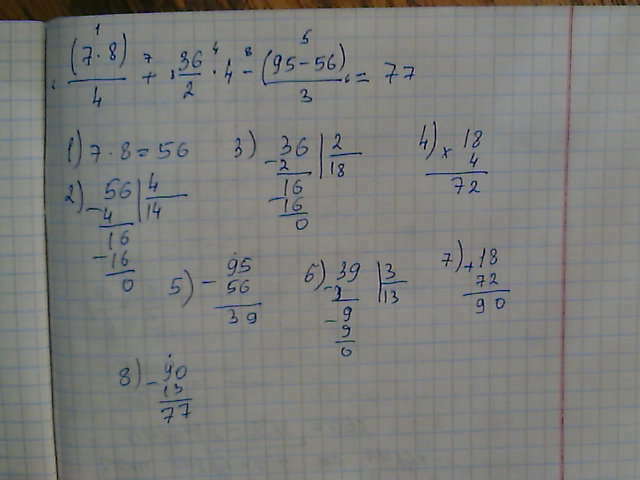 (7·8)/4 + 36/2 · 4 - (95-56)/3 = 77
1 7 4 8 5
1) 7·8=56
2) 56 | 4
- 4 | 14
16
- 16
0
3) 36 | 2
- 2 | 18
16
- 16
0
4) × 18
4
72
5) - 95
56
39
6) 39 | 3
- 3 | 13
9
- 9
0
7) + 18
72
90
8) - 90
13
77